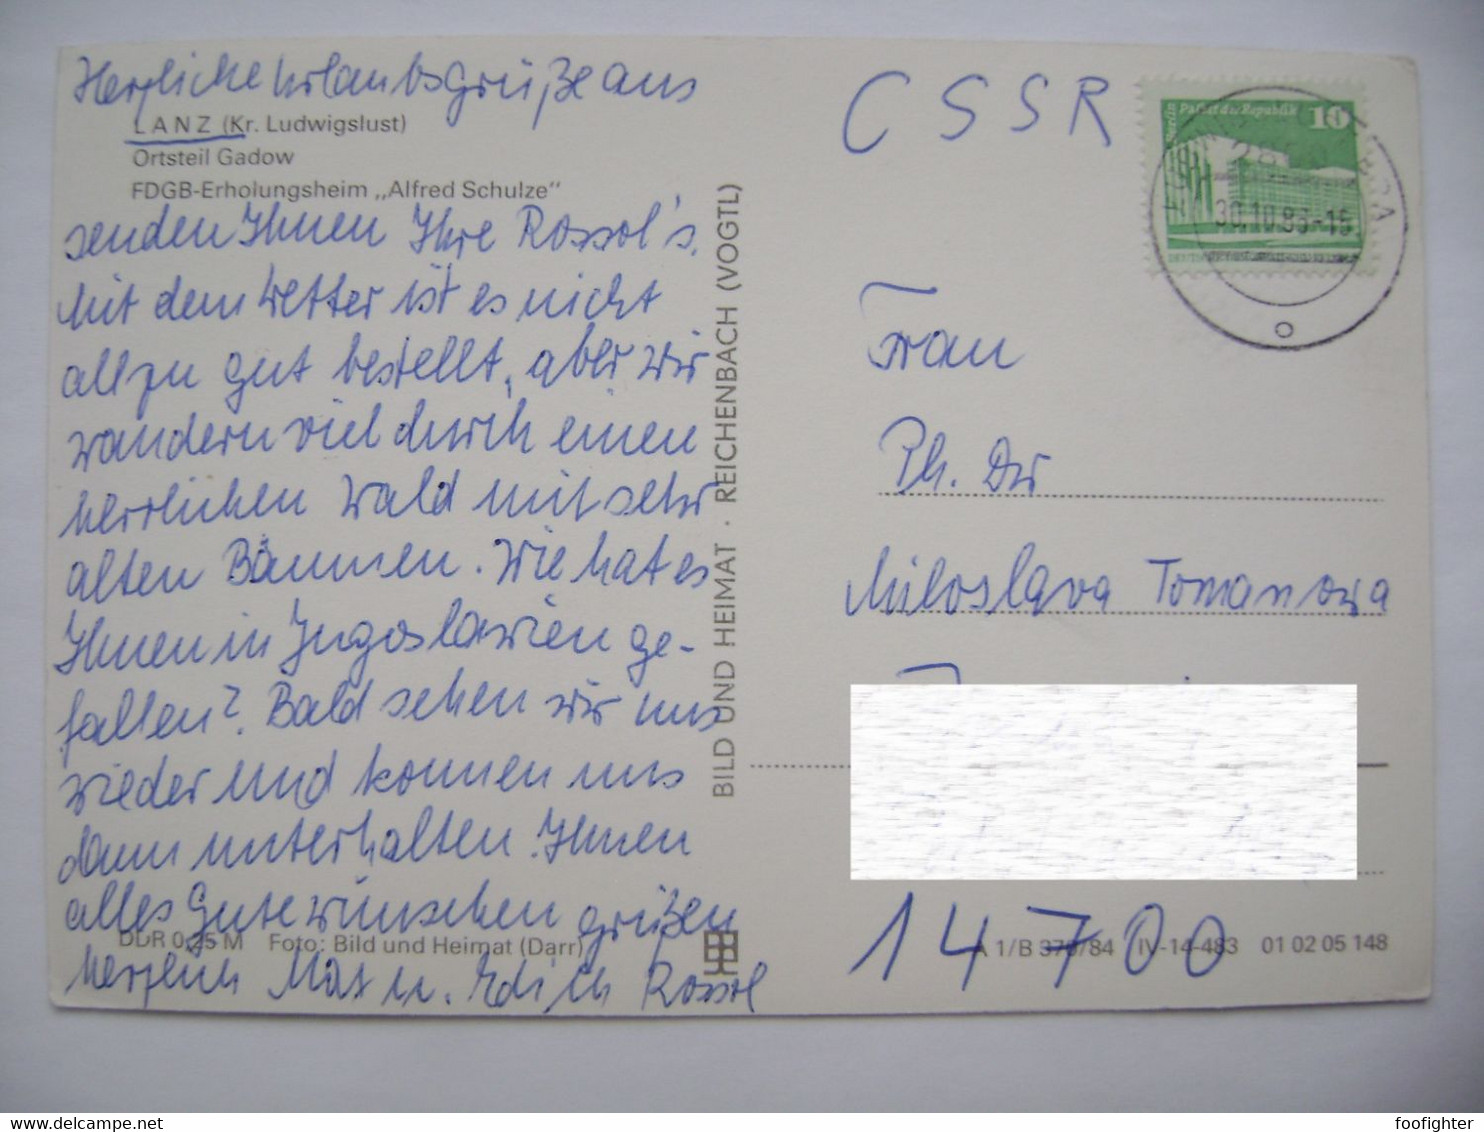 Herzliche Urlaubsgrüße aus
LANZ (Kr. Ludwigslust)
Ortsteil Gadow
FDGB-Erholungsheim „Alfred Schulze"
senden Ihnen Ihre Rossol's.
Mit dem Wetter ist es nicht
allzu gut bestellt, aber wir
wandern viel durch einen
herrlichen Wald mit sehr
alten Bäumen. Wie hat es
Ihnen in Jugoslawien ge-
fallen? Bald sehen wir uns
wieder und können uns
dann unterhalten. Ihnen
alles Gute wünschen grüßen
DDR 0,25 M Foto: Bild und Heimat (Darr)
herzlich Max u. Edith Rossol
BILD UND HEIMAT · REICHENBACH (VOGTL)
CSSR
Berlin Palast der Republik 10
30.10.85-15
Frau
Ph. Dr
Miloslava Tomanova
14700
A 1/B 376/84 IV-14-483 01 02 05 148
foofighter